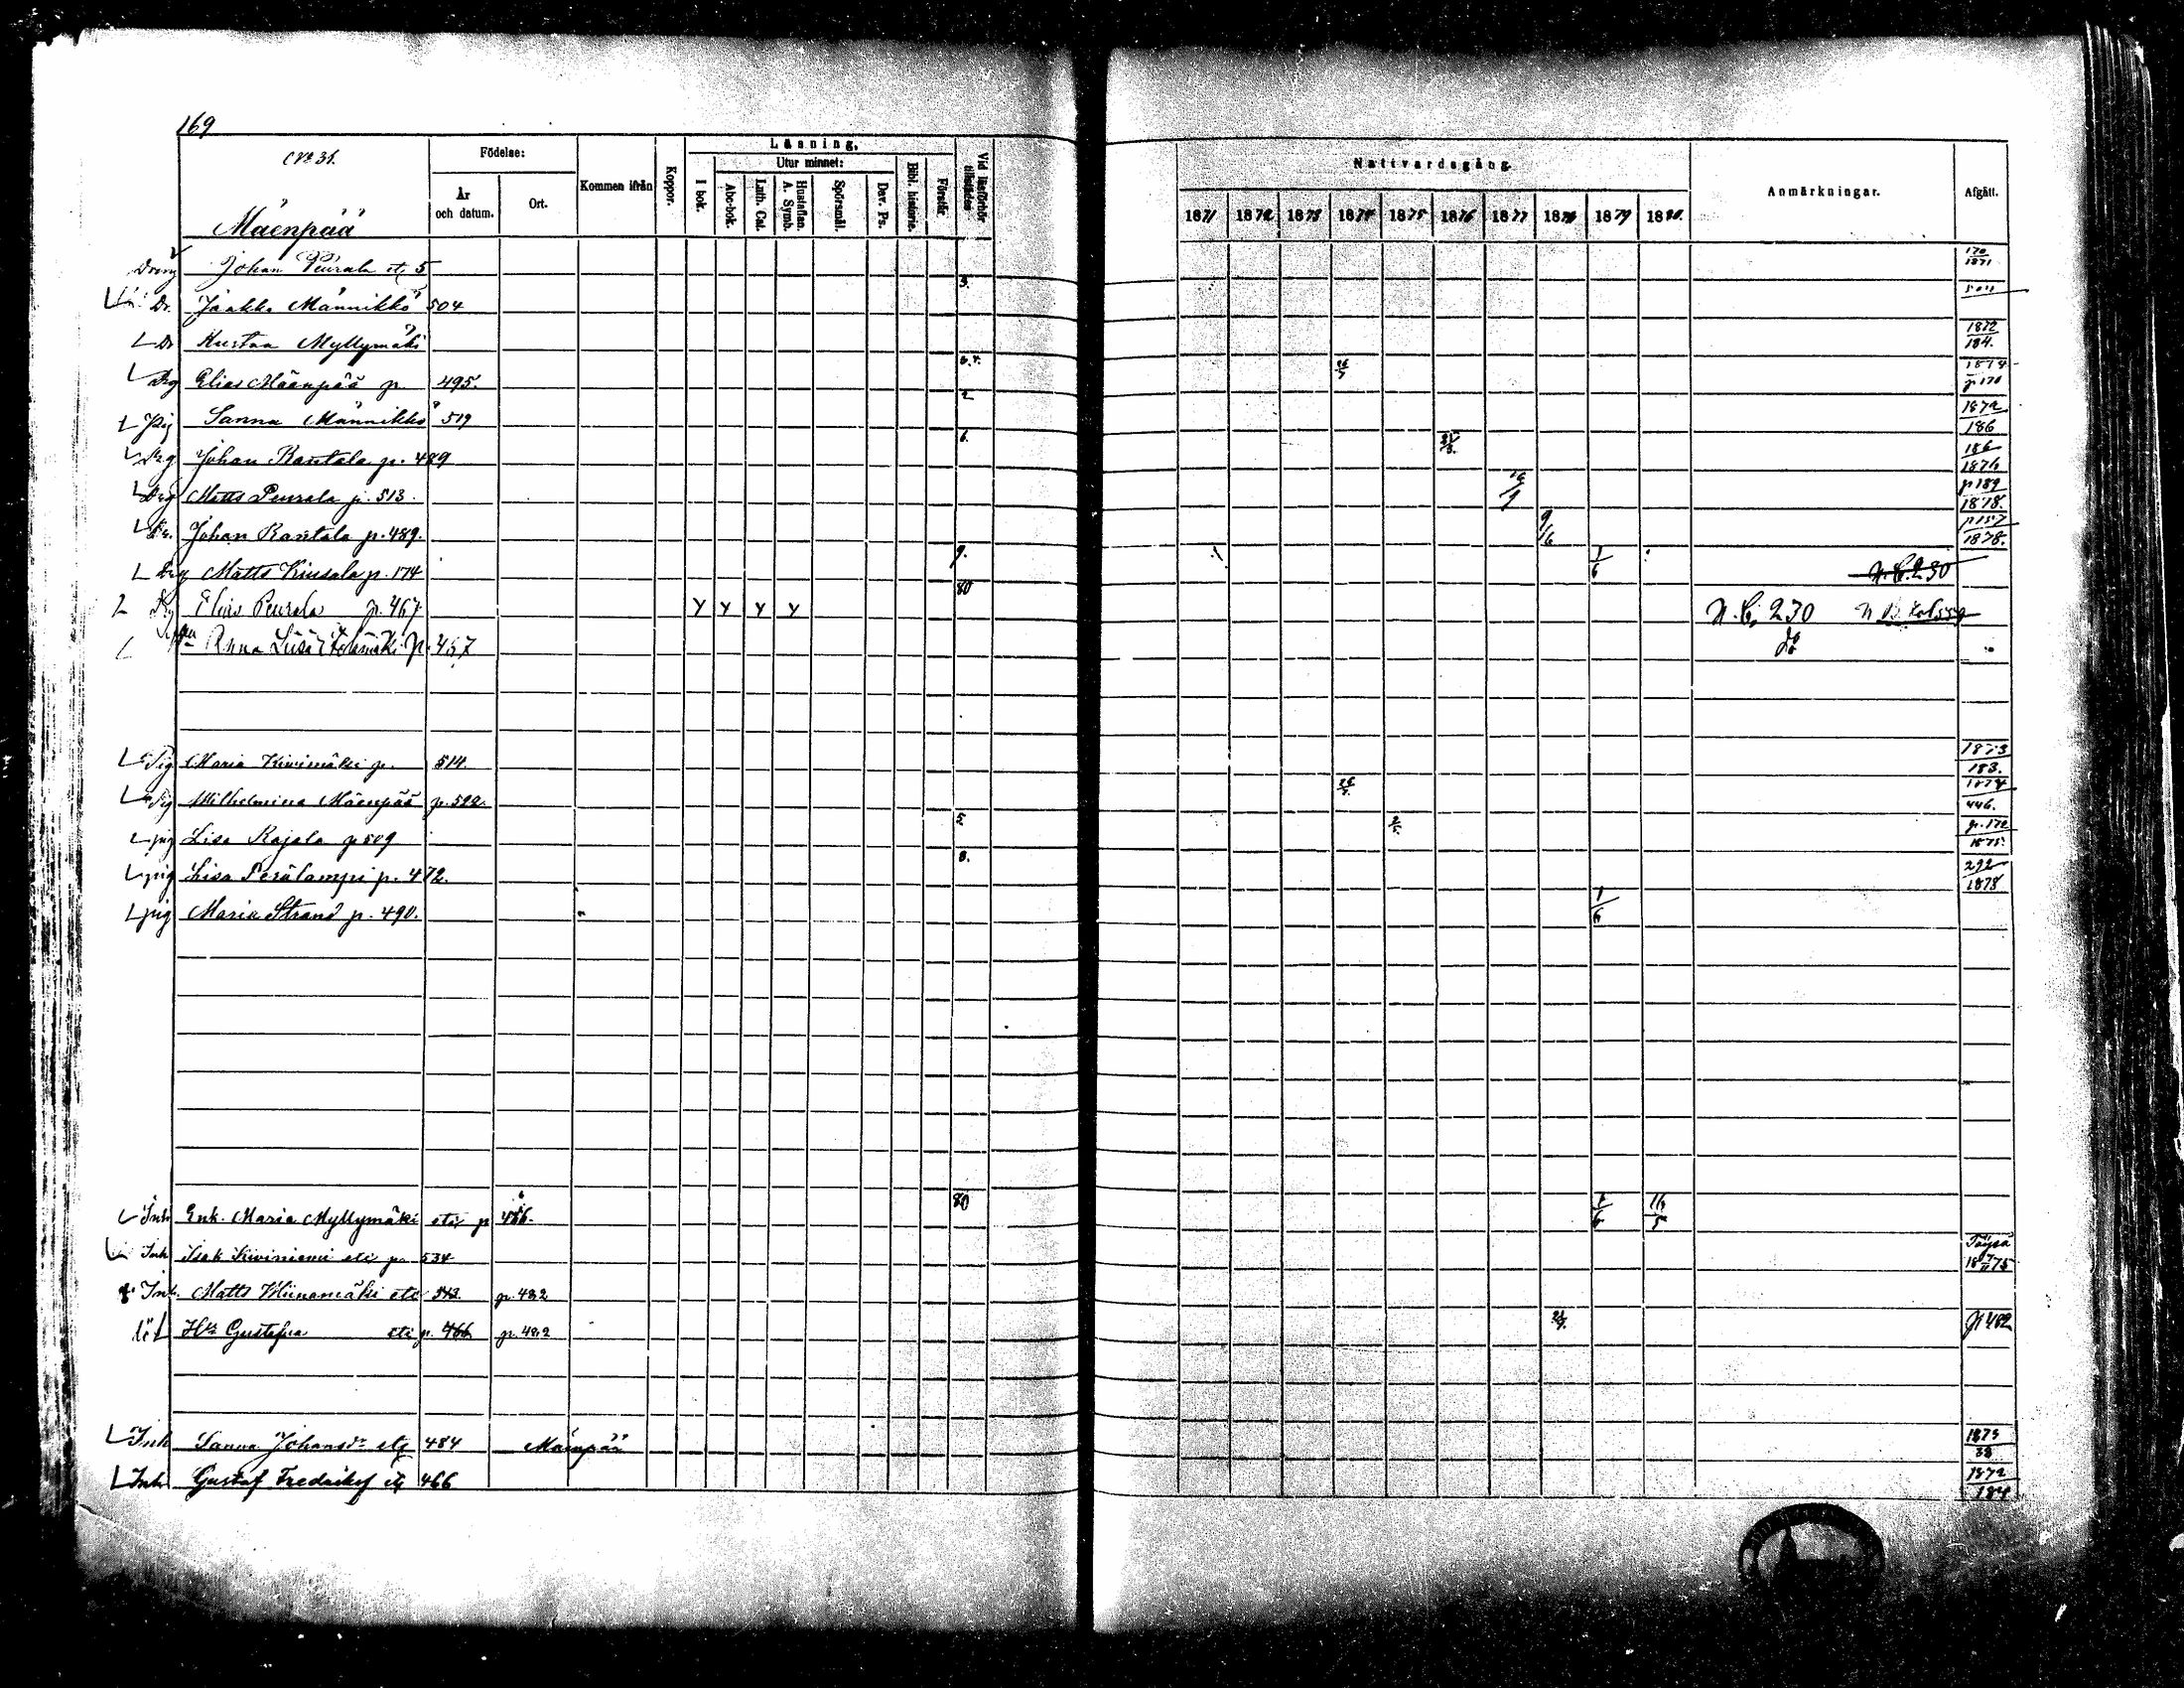 169
No 31.
Mäenpää
Födelse:
År och datum.
Ort.
Kommen ifrån
Koppor.
Läsning,
I bok.
Utur minnet:
Abc-bok.
Luth. Cat.
Hustaflan. A. Symb.
Spörsmål.
Dav. Ps.
Bibl. historie.
Förstår
Vid läsförhör tillstädes
Nattvardsgång.
1871 1872 1873 1874 1875 1876 1877 1878 1879 1880
Anmärkningar.
Afgått.
Dreng Johan Peurala etc 5 170 1871
Dr. Jaakko Männikkö 504 3.
Dr Kustaa Myllymäki 1872 184.
Drg Elias Mäenpää p 495. 1874 p 170
Pig Sanna Männikkö 519 2 1872 186
Drg Johan Rantala p. 489 6. 186 1876
Drg Matts Peurala p. 513. p 189 1878.
Dr. Johan Rantala p. 489. 9/6 p 157 1878.
Drg Matts Kiusala p. 174 9. 1/6 N.B. 230
Drg Elias Peurala p. 467 y y y y 80 N.B. 230
Anna Liisa p. 457 do
Pig Maria Kivimäki p. 514. 1873 183.
Pig Wilhelmina Mäenpää p. 522. 1874 446.
pig Lisa Rajala p 509 5 p. 172 1875.
pig Lisa Perälampi p. 472. 8. 292 1878
pig Maria Strand p. 490. 1/6
Inh Enk. Maria Myllymäki etc p 466. 80 1/6 16/5
Inh Isak Kiviniemi etc p. 534 Töysä
Inh. Matts Kiinamäki etc 543. p. 482
Hu Gustafva etc p. 466 p. 482 p 482
Inh Sanna Johansdr etc 484 Mäenpää 1873 38
Inh Gustaf Fredriksf etc 466 1872 184